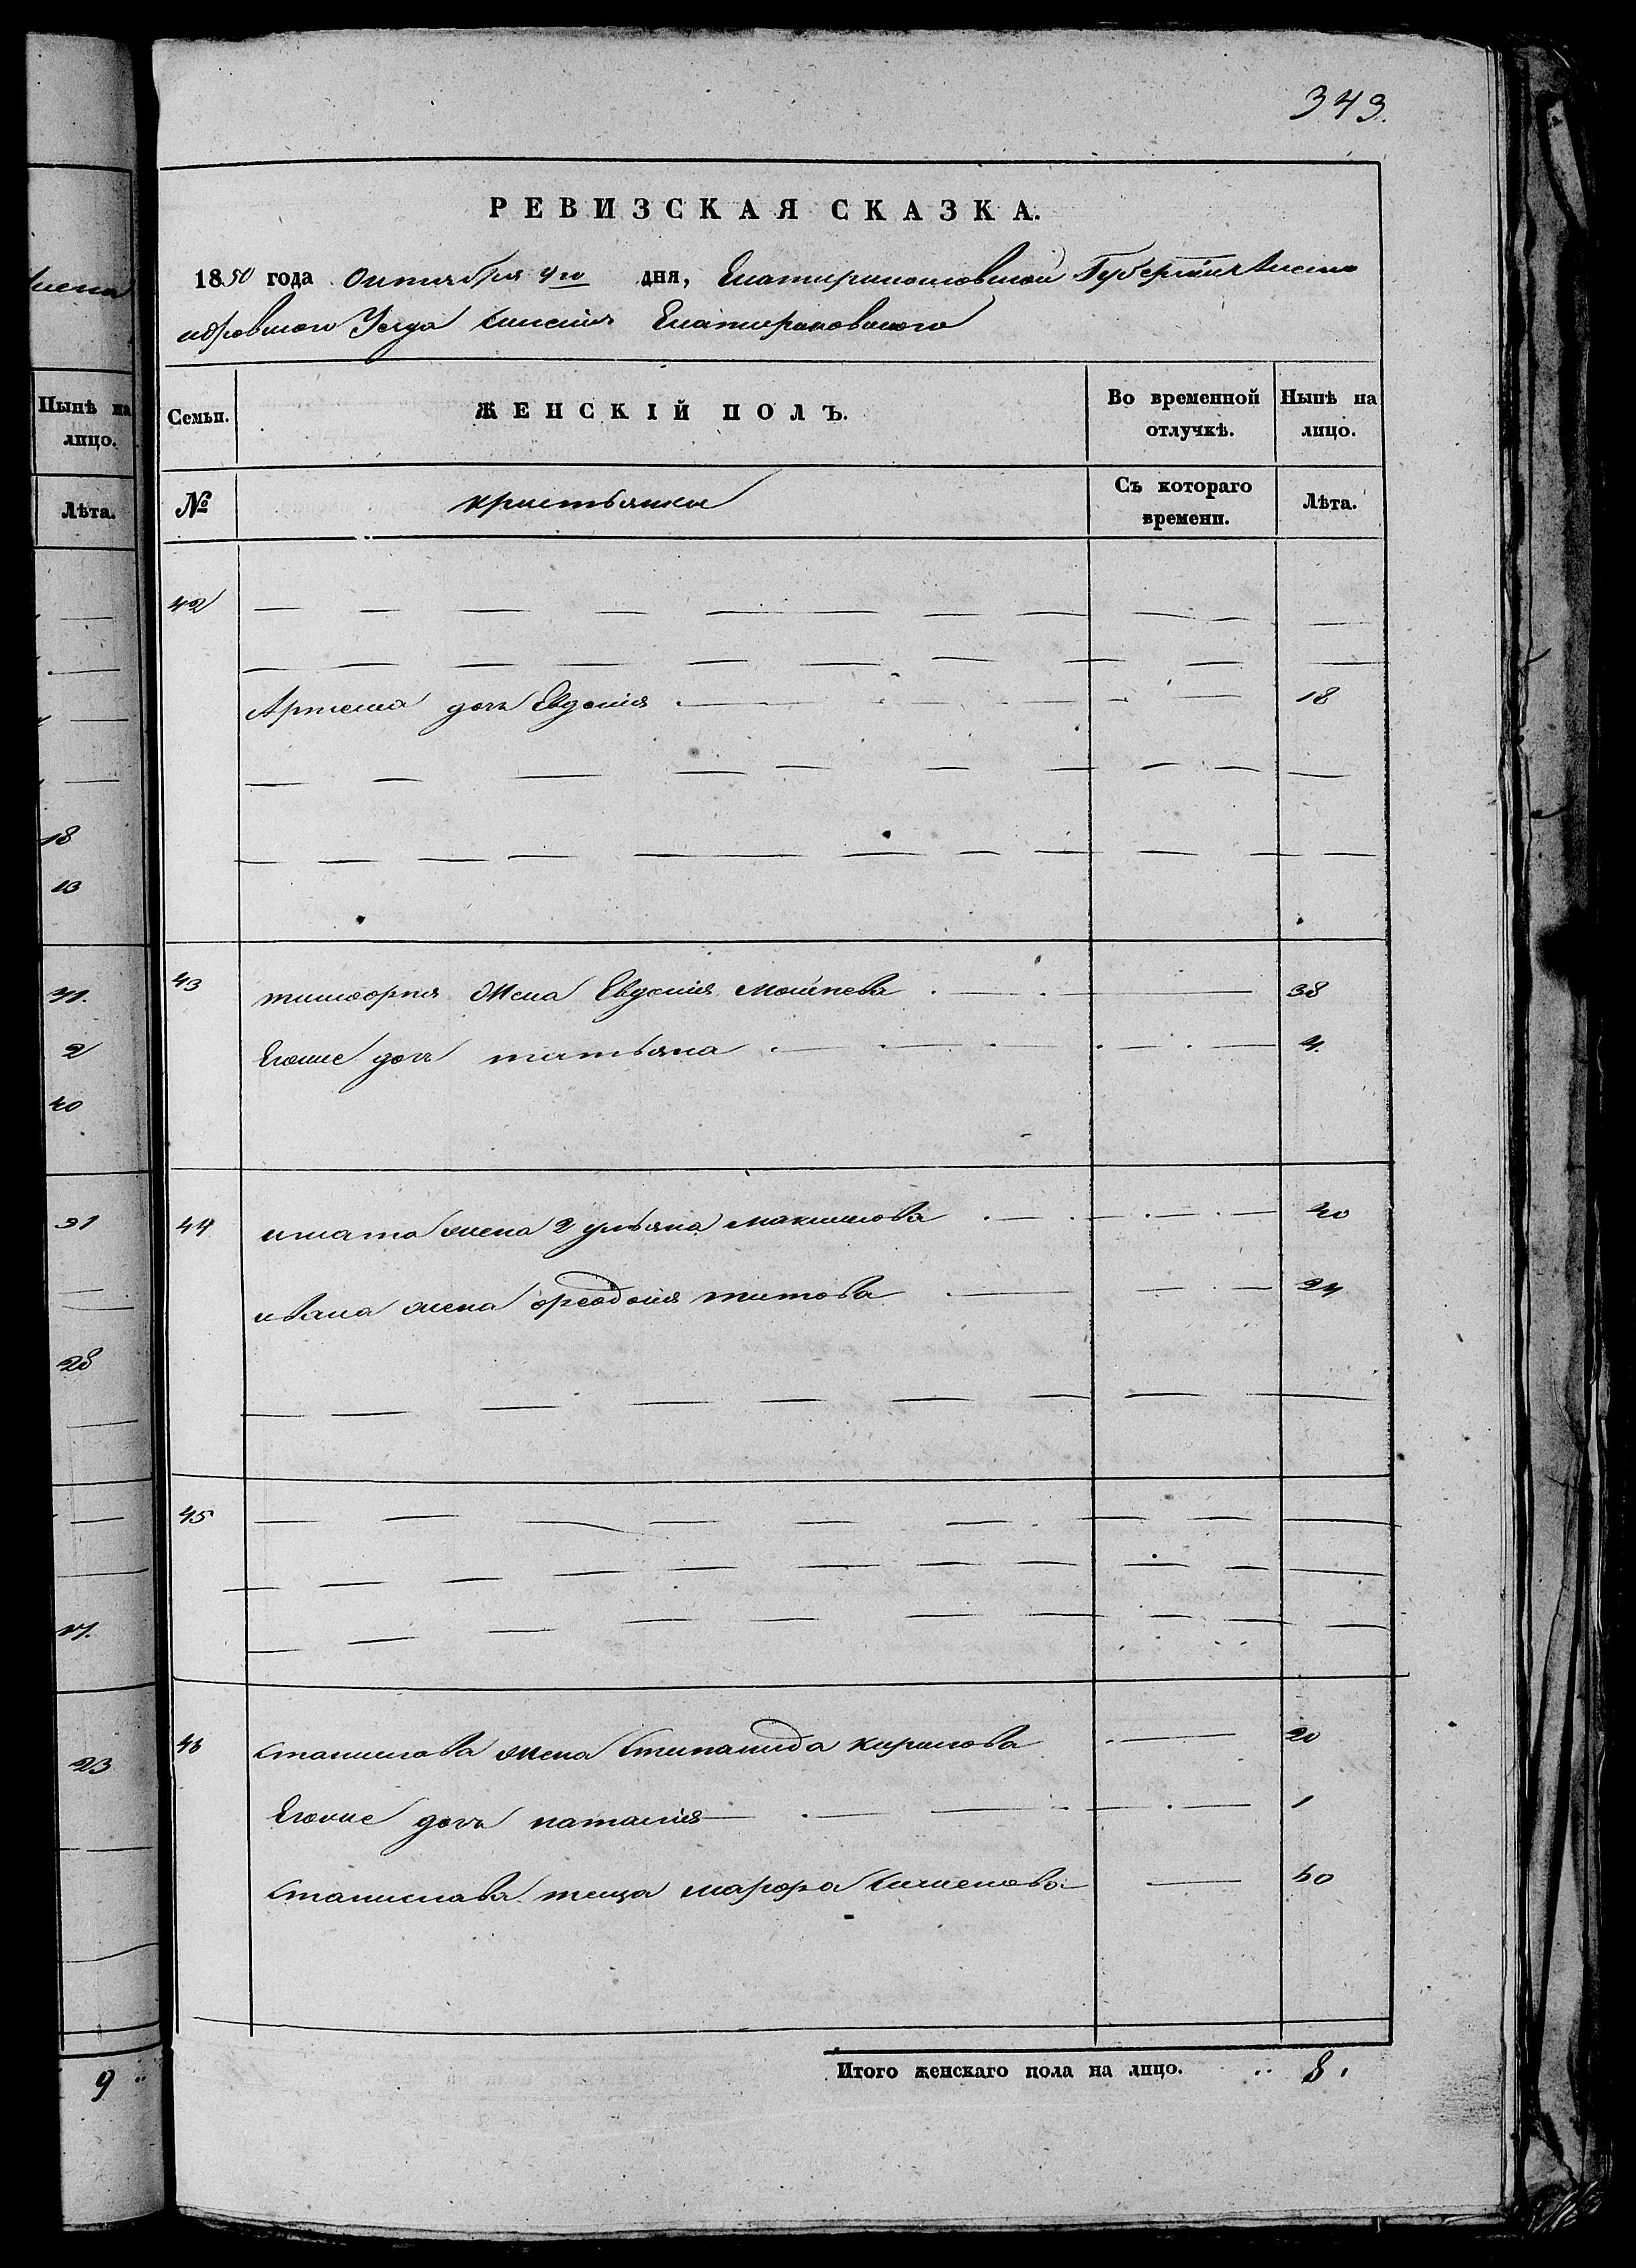 343.
РЕВИЗСКАЯ СКАЗКА.
1850 года Октября 4го дня, Екатиринославской Губернии Алекса
ндровского Уезда Имения Екатириновского
Семьи. ЖЕНСКІЙ ПОЛЪ. Во временной отлучкѣ. Нынѣ на лицо.
№ Съ котораго времени. Лѣта.
42
дочь Евдокия 18
43 жена Евдокия Моисѣева 38
Егоже дочь татьяна 4.
44 игната жена 2 ульяна максимова 40
ивана жена феодосия титова 24
45
46 станислова жена Степанида кирилова 20
Егоже дочь наталия 1
Станислава теща марфа Семенова 60
Итого женскаго пола на лицо. 8.
Нынѣ на
лицо.
Лѣта.
18
13
2
40
28
23
9